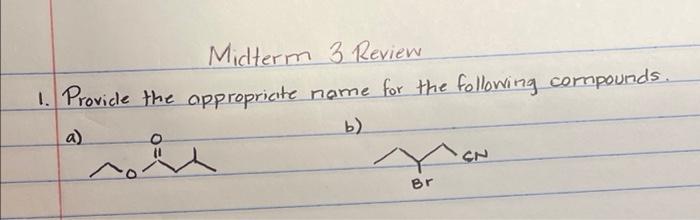 Midterm 3 Review
1. Provide the appropriate name for the following compounds.
a) b)
O
O
CN
Br